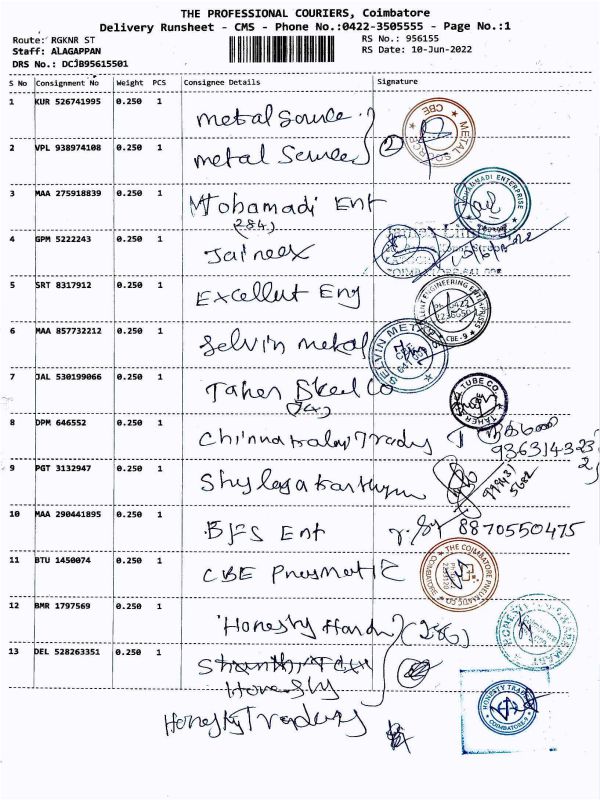 THE PROFESSIONAL COURIERS, Coimbatore
Delivery Runsheet - CMS - Phone No.:0422-3505555 - Page No.:1
Route: RGKNR ST RS No.: 956155
Staff: ALAGAPPAN RS Date: 10-Jun-2022
DRS No.: DCJB95615501
S No Consignment No Weight PCS Consignee Details Signature
1 KUR 526741995 0.250 1 metal source
2 VPL 938974108 0.250 1 metal 2
3 MAA 275918839 0.250 1 Mohamadi Ent
(284)
4 GPM 5222243 0.250 1 Jaineex
5 SRT 8317912 0.250 1 Excellent Eng
6 MAA 857732212 0.250 1 Selvin metal
SELVIN METALS
7 JAL 530199066 0.250 1 Taher Steel Co
(74)
TAHER TUBE CO.
8 DPM 646552 0.250 1
9 PGT 3132947 0.250 1
10 MAA 290441895 0.250 1 BJS Ent 8870550475
11 BTU 1450074 0.250 1 CBE Pneumatic
THE COIMBATORE PNEUMATIC CO.
12 BMR 1797569 0.250 1 Honesty Hardw (286)
13 DEL 528263351 0.250 1
Honesty
Honesty Traders
HONESTY TRADERS
COIMBATORE-9